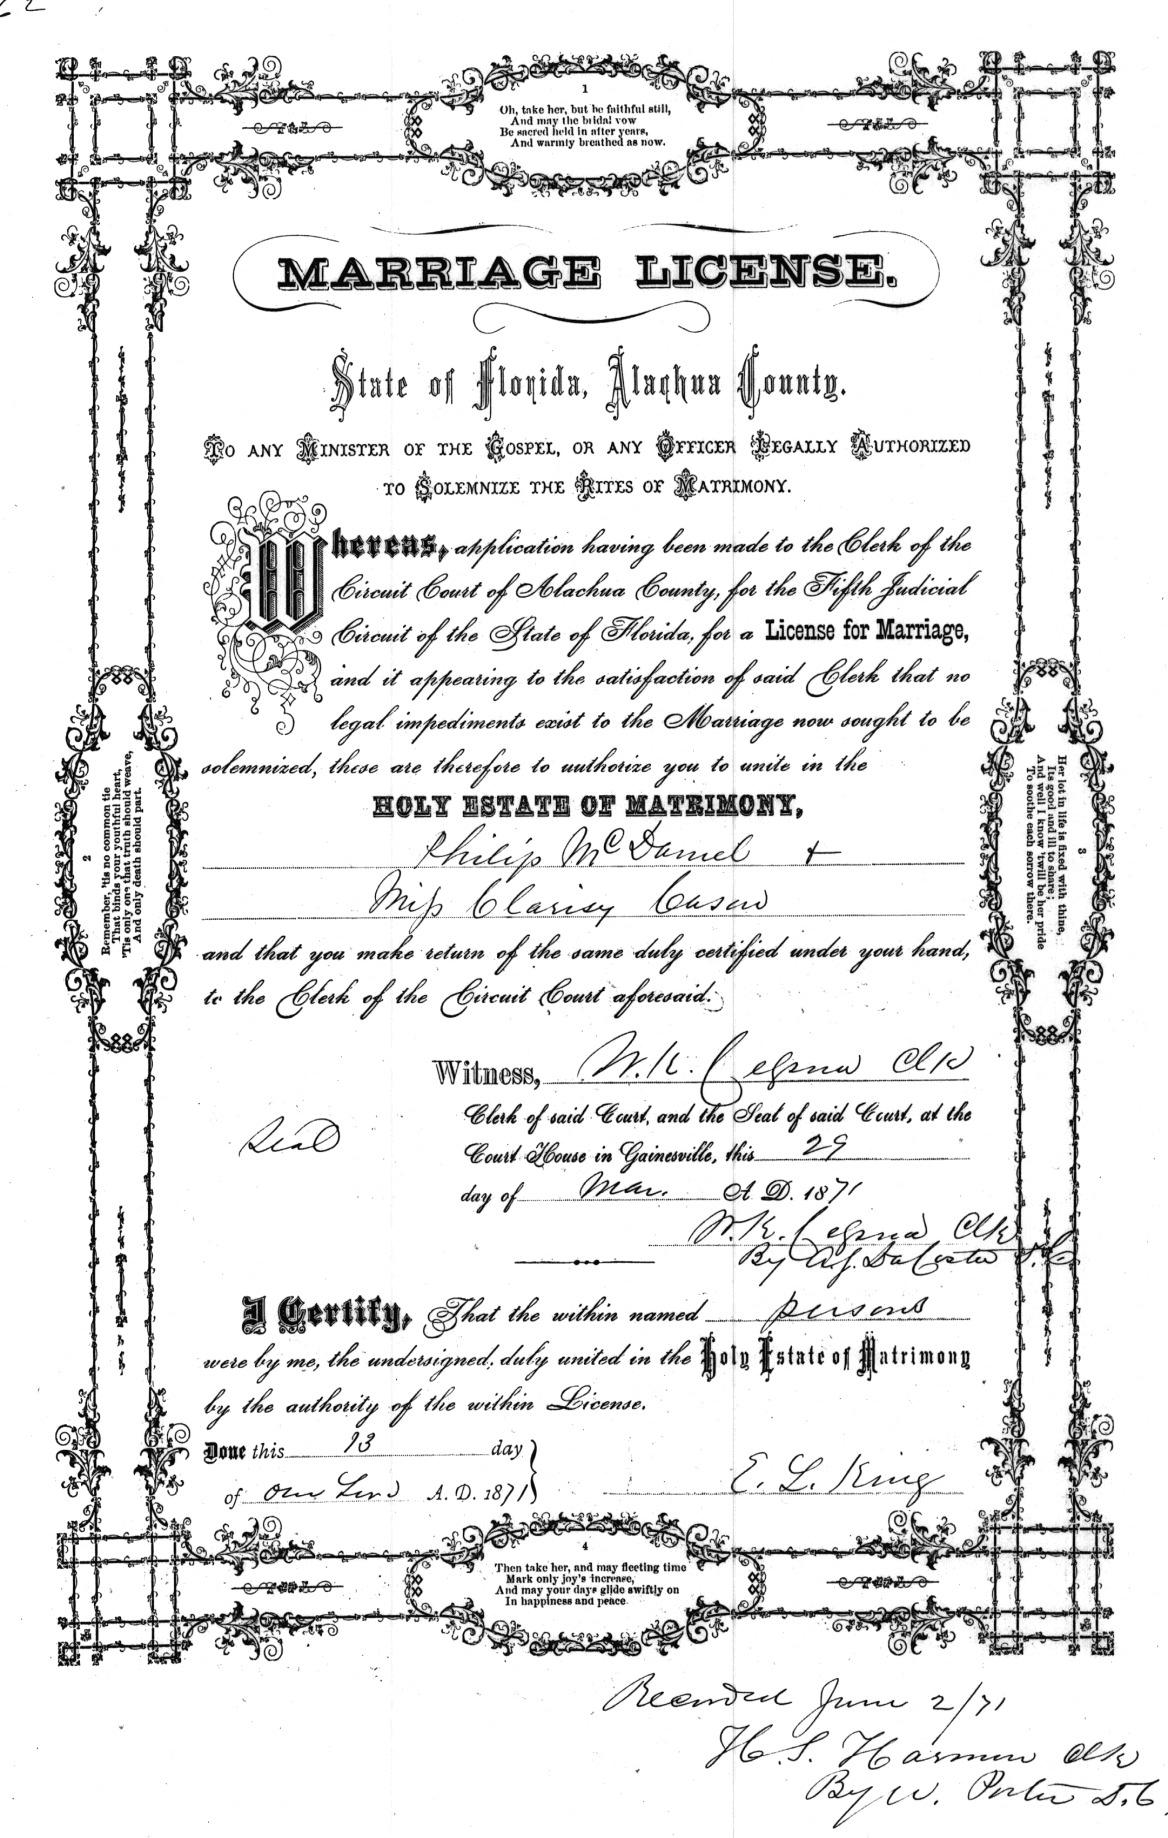 1
Oh, take her, but be faithful still,
And may the bridal vow
Be sacred held in after years,
And warmly breathed as now.
MARRIAGE LICENSE.
State of Florida, Alachua County.
TO ANY MINISTER OF THE GOSPEL, OR ANY OFFICER LEGALLY AUTHORIZED
TO SOLEMNIZE THE RITES OF MATRIMONY.
Whereas, application having been made to the Clerk of the
Circuit Court of Alachua County, for the Fifth Judicial
Circuit of the State of Florida, for a License for Marriage,
and it appearing to the satisfaction of said Clerk that no
legal impediments exist to the Marriage now sought to be
solemnized, these are therefore to authorize you to unite in the
HOLY ESTATE OF MATRIMONY,
Philip McDaniel +
Miss Clarisy Cason
and that you make return of the same duly certified under your hand,
to the Clerk of the Circuit Court aforesaid.
Witness, W. K. Clk
Clerk of said Court, and the Seal of said Court, at the
Seal
Court House in Gainesville, this 29
day of Mar. A. D. 1871
W. K. Clk
By A. J. DaCosta D.C.
I Certify, That the within named persons
were by me, the undersigned, duly united in the Holy Estate of Matrimony
by the authority of the within License.
Done this 13 day
of our Lord A. D. 1871
E. L. King
2
Remember, 'tis no common tie
That binds your youthful heart,
'Tis only one that truth should weave,
And only death should part.
3
Her lot in life is fixed with thine,
Its good and ill to share;
And well I know 'twill be her pride
To soothe each sorrow there.
4
Then take her, and may fleeting time
Mark only joy's increase,
And may your days glide swiftly on
In happiness and peace
Recorded June 2/71
H. S. Harmon Clk
By W. Porter D.C.